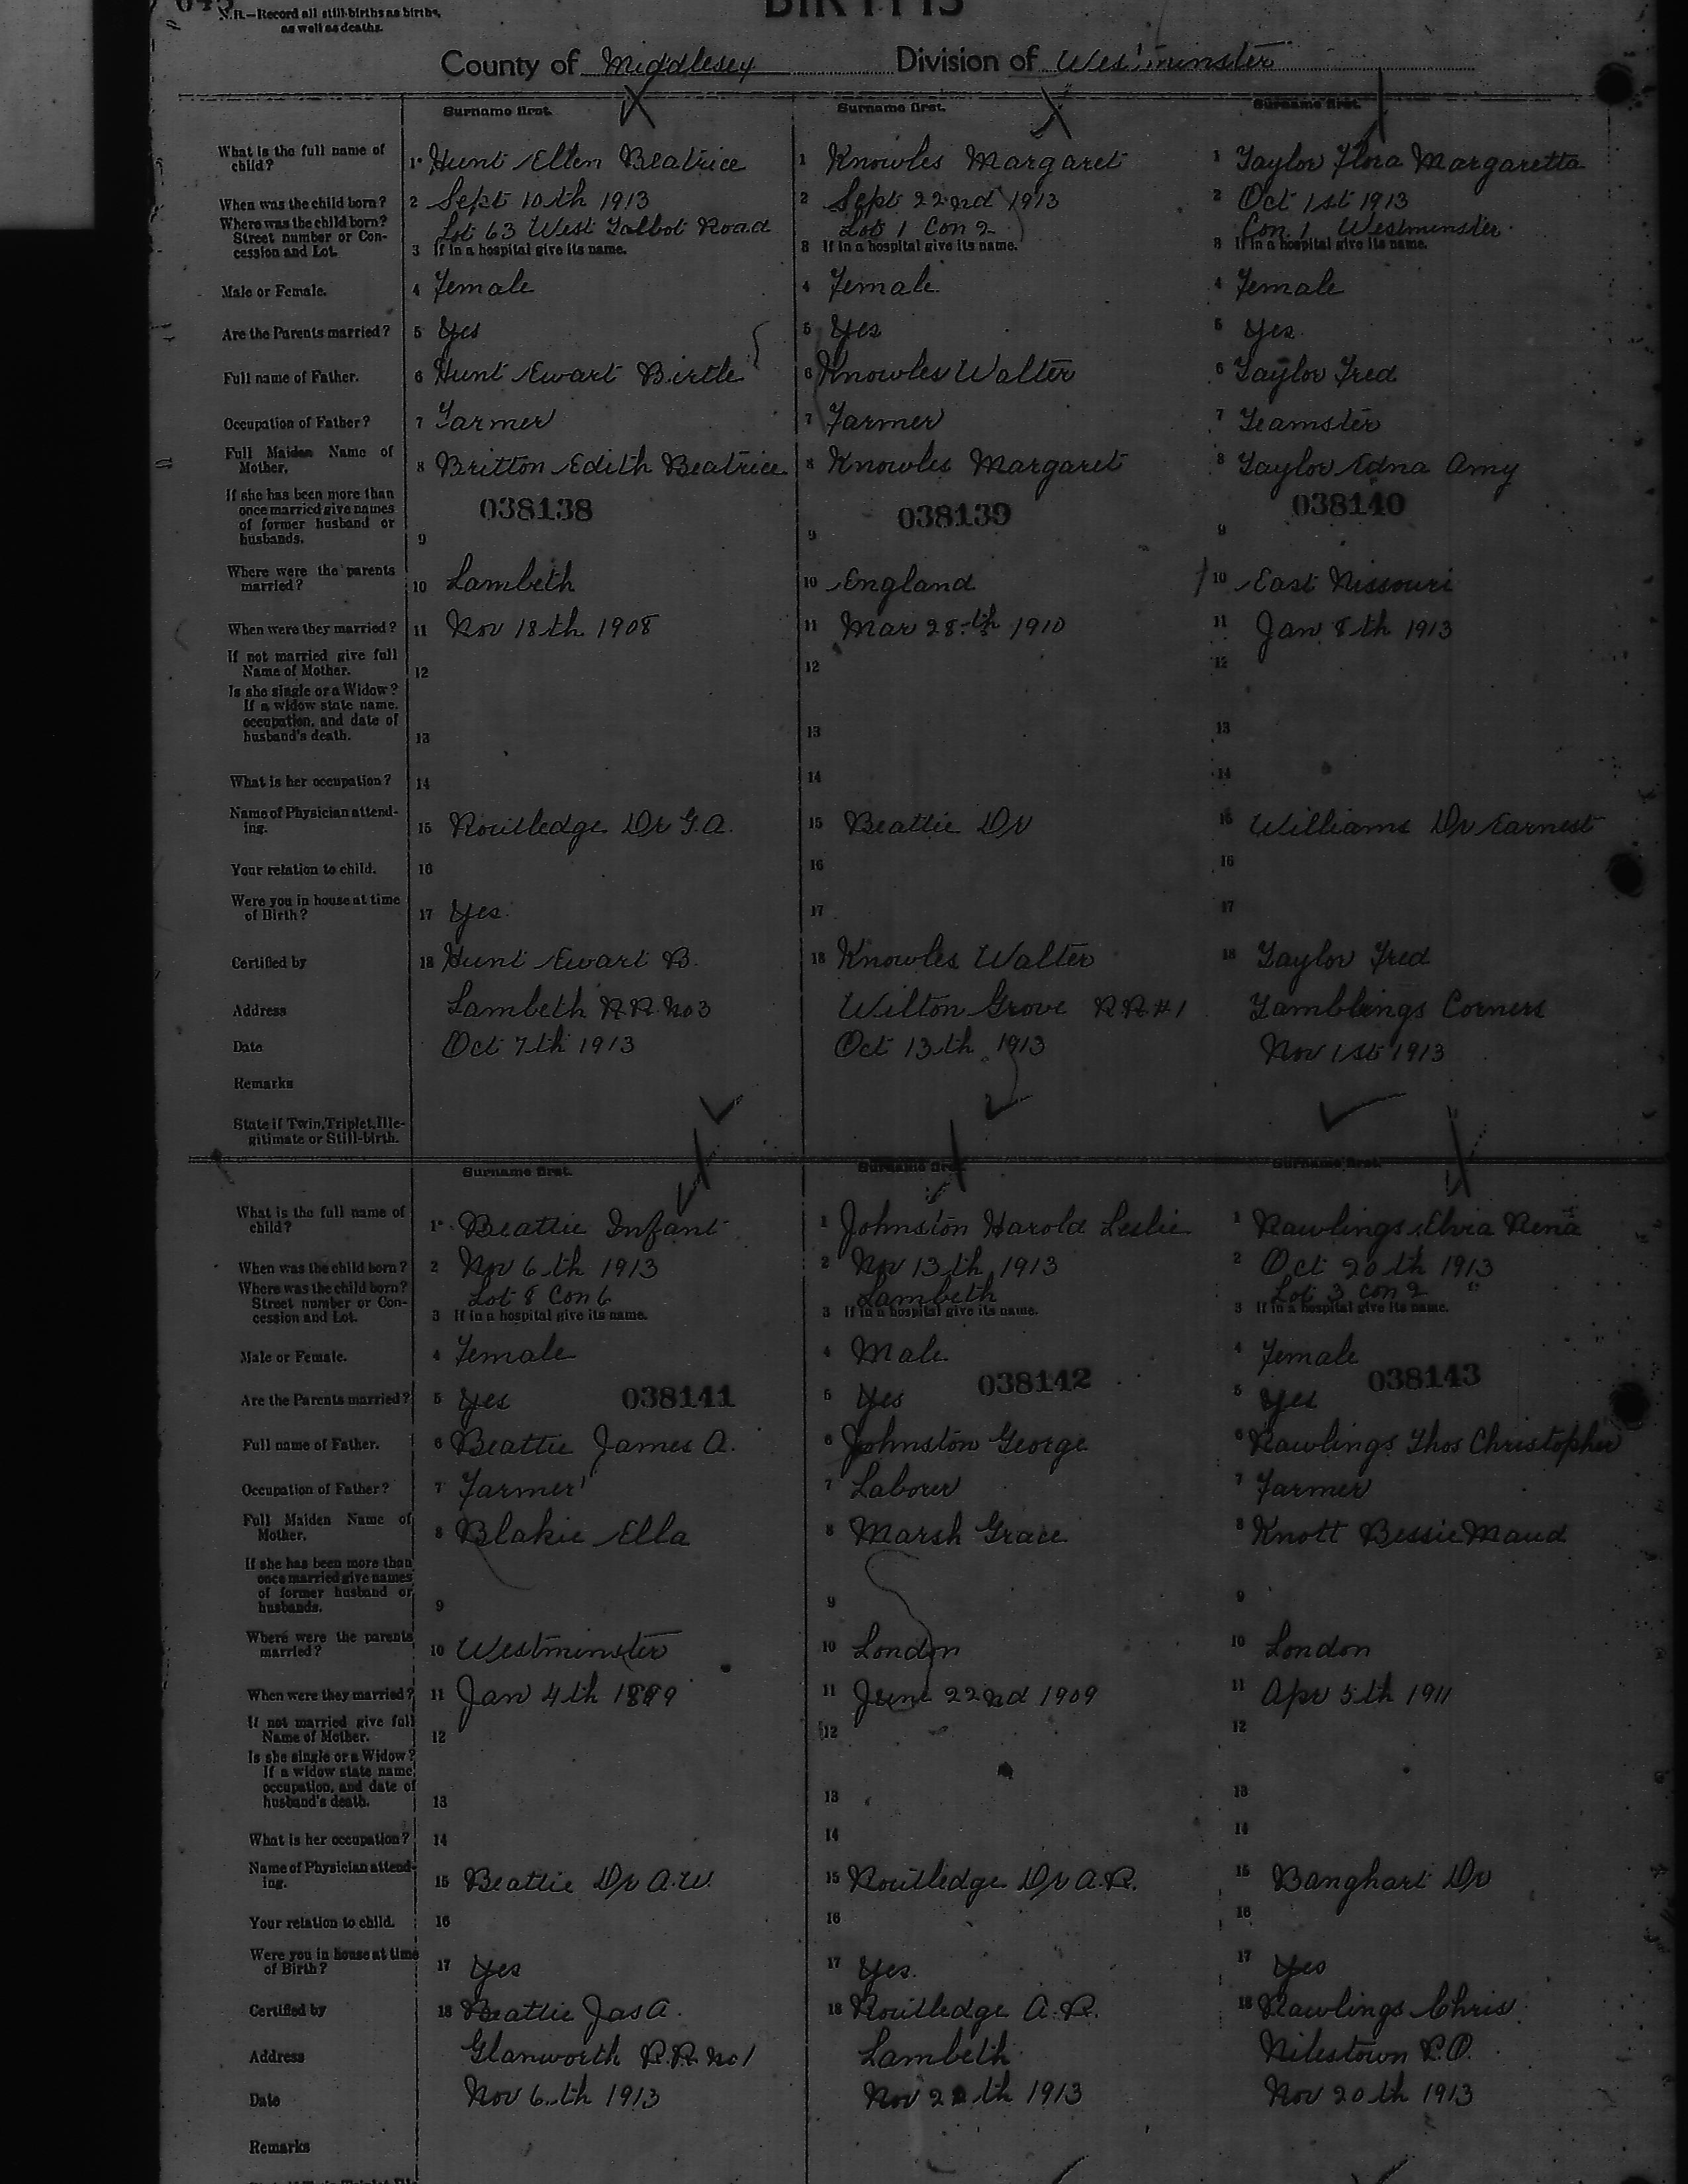 N.B.—Record all still-births as births,
as well as deaths.
BIRTHS
County of Middlesex Division of Westminster
Surname first. Surname first. Surname first.
What is the full name of child? 1 Hunt Ellen Beatrice 1 Knowles Margaret 1 Taylor Flora Margaretta
When was the child born? 2 Sept 10th 1913 2 Sept 22nd 1913 2 Oct 1st 1913
Where was the child born? Street number or Concession and Lot. Lot 63 West Talbot Road Lot 1 Con 2 Con. 1 Westminster
3 If in a hospital give its name. 3 If in a hospital give its name. 3 If in a hospital give its name.
Male or Female. 4 Female 4 Female 4 Female
Are the Parents married? 5 Yes 5 Yes 5 Yes
Full name of Father. 6 Hunt Ewart Birtle 6 Knowles Walter 6 Taylor Fred
Occupation of Father? 7 Farmer 7 Farmer 7 Teamster
Full Maiden Name of Mother. 8 Britton Edith Beatrice 8 Knowles Margaret 8 Taylor Edna Amy
038138 038139 038140
If she has been more than once married give names of former husband or husbands. 9 9 9
Where were the parents married? 10 Lambeth 10 England 10 East Nissouri
When were they married? 11 Nov 18th 1908 11 Mar 28th 1910 11 Jan 8th 1913
If not married give full Name of Mother. 12 12 12
Is she single or a Widow? If a widow state name, occupation, and date of husband's death. 13 13 13
What is her occupation? 14 14 14
Name of Physician attending. 15 Routledge Dr G.A. 15 Beattie Dr 15 Williams Dr Earnest
Your relation to child. 16 16 16
Were you in house at time of Birth? 17 Yes 17 17
Certified by 18 Hunt Ewart B. 18 Knowles Walter 18 Taylor Fred
Address Lambeth R.R. No 3 Wilton Grove R.R #1 Tamblings Corners
Date Oct 7th 1913 Oct 13th 1913 Nov 1st 1913
Remarks
State if Twin, Triplet, Illegitimate or Still-birth.
Surname first. Surname first. Surname first.
What is the full name of child? 1 Beattie Infant 1 Johnston Harold Leslie 1 Rawlings Elvia Rena
When was the child born? 2 Nov 6th 1913 2 Nov 13th 1913 2 Oct 20th 1913
Where was the child born? Street number or Concession and Lot. Lot 8 Con 6 Lambeth Lot 3 Con 2
3 If in a hospital give its name. 3 If in a hospital give its name. 3 If in a hospital give its name.
Male or Female. 4 Female 4 Male 4 Female
Are the Parents married? 5 Yes 038141 5 Yes 038142 5 Yes 038143
Full name of Father. 6 Beattie James A. 6 Johnston George 6 Rawlings Thos Christopher
Occupation of Father? 7 Farmer 7 Laborer 7 Farmer
Full Maiden Name of Mother. 8 Blakie Ella 8 Marsh Grace 8 Knott Bessie Maud
If she has been more than once married give names of former husband or husbands. 9 9 9
Where were the parents married? 10 Westminster 10 London 10 London
When were they married? 11 Jan 4th 11 June 22nd 1909 11 Apr 5th 1911
If not married give full Name of Mother. 12 12 12
Is she single or a Widow? If a widow state name, occupation, and date of husband's death. 13 13 13
What is her occupation? 14 14 14
Name of Physician attending. 15 Beattie Dr A.W. 15 Routledge Dr A.R. 15 Banghart Dr
Your relation to child. 16 16 16
Were you in house at time of Birth? 17 Yes 17 Yes. 17 Yes
Certified by 18 Beattie Jas A. 18 Routledge A.R. 18 Rawlings Chris
Address Glanworth R.R. No 1 Lambeth Nilestown P.O.
Date Nov 6th 1913 Nov 1913 Nov 20th 1913
Remarks